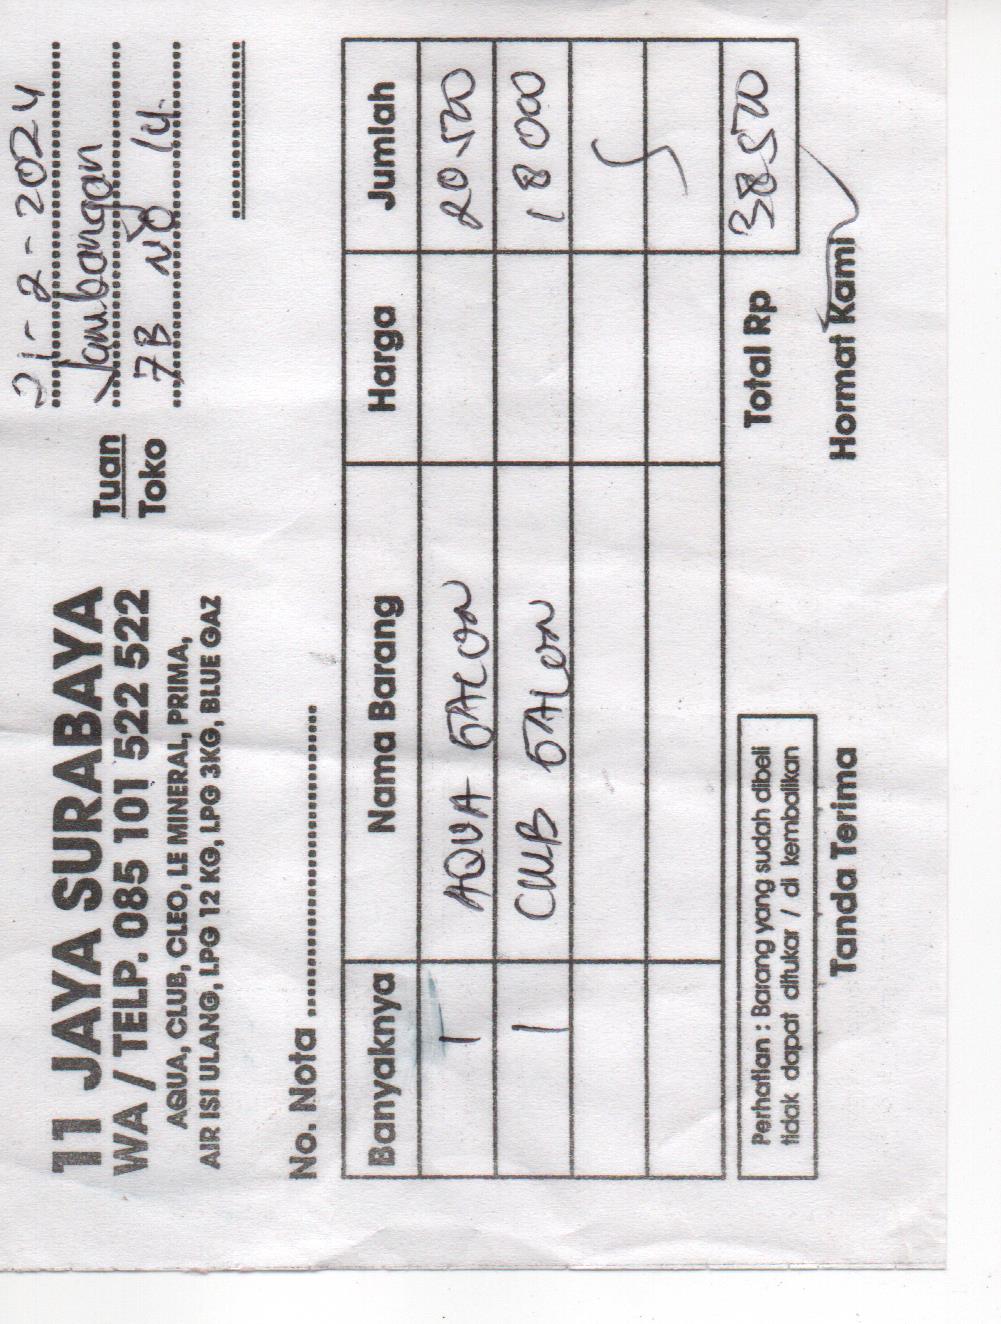 21-2-2024
11 JAYA SURABAYA
WA / TELP. 085 101 522 522
AQUA, CLUB, CLEO, LE MINERAL, PRIMA,
AIR ISI ULANG, LPG 12 KG, LPG 3KG, BLUE GAZ
Tuan Jambangan
Toko 7B NO 14.
No. Nota ..............................
Banyaknya Nama Barang Harga Jumlah
1 AQUA GALON 20.500
1 CLUB GALON 18000
Total Rp 38500
Perhatian : Barang yang sudah dibeli
tidak dapat ditukar / di kembalikan
Tanda Terima Hormat Kami